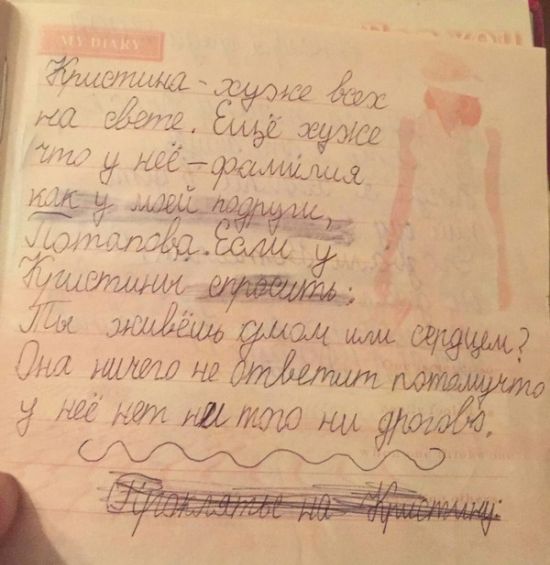 MY DIARY
Кристина - хуже всех
на свете. Ещё хуже
что у неё - фамилия
как у моей подруги,
Потапова. Если у
Кристины спросить:
Ты живёшь умом или сердцем?
Она ничего не ответит потомучто
у неё нет ни того ни другово.
Проклятье на Кристину: